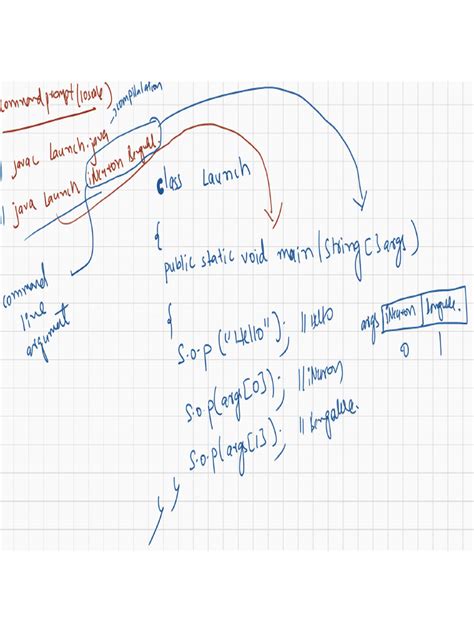 command prompt (console)
compilation
javac Launch.java
java Launch iNeuron
command
line
argument
class Launch
{
public static void main(String[] args)
{
S.o.p("Hello"); //Hello
S.o.p(args[0]); //iNeuron
S.o.p(args[1]);
args iNeuron
0 1
}
}